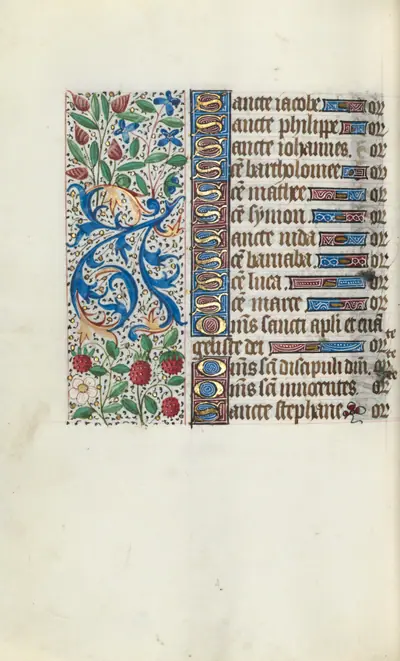 Sancte iacobe or
Sancte philipe or
Sancte iohannes or
Sctē bartholomee or
Sctē mathee or
Sctē symon or
Sancte iuda or
Sctē barnaba or
Sctē luca or
Sctē marce or
Om̄s sancti apli et euā
geliste dei or
Om̄s scī discipuli dn̄i or
Om̄s scī innocentes or
Sancte stephane or